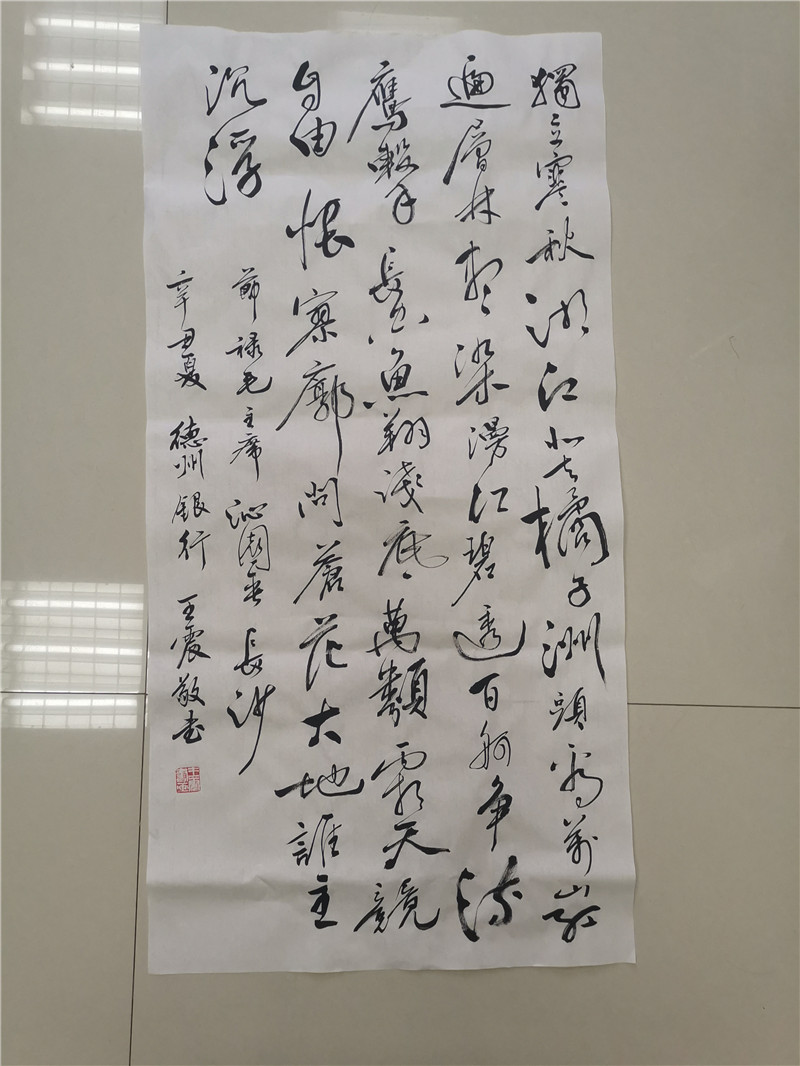 獨立寒秋湘江北去橘子洲頭看萬山紅
遍層林盡染漫江碧透百舸争流
鷹擊長空魚翔淺底萬類霜天競
自由悵寥廓問蒼茫大地誰主
沉浮
節録毛主席沁園春長沙
辛丑夏德州銀行王震敬書